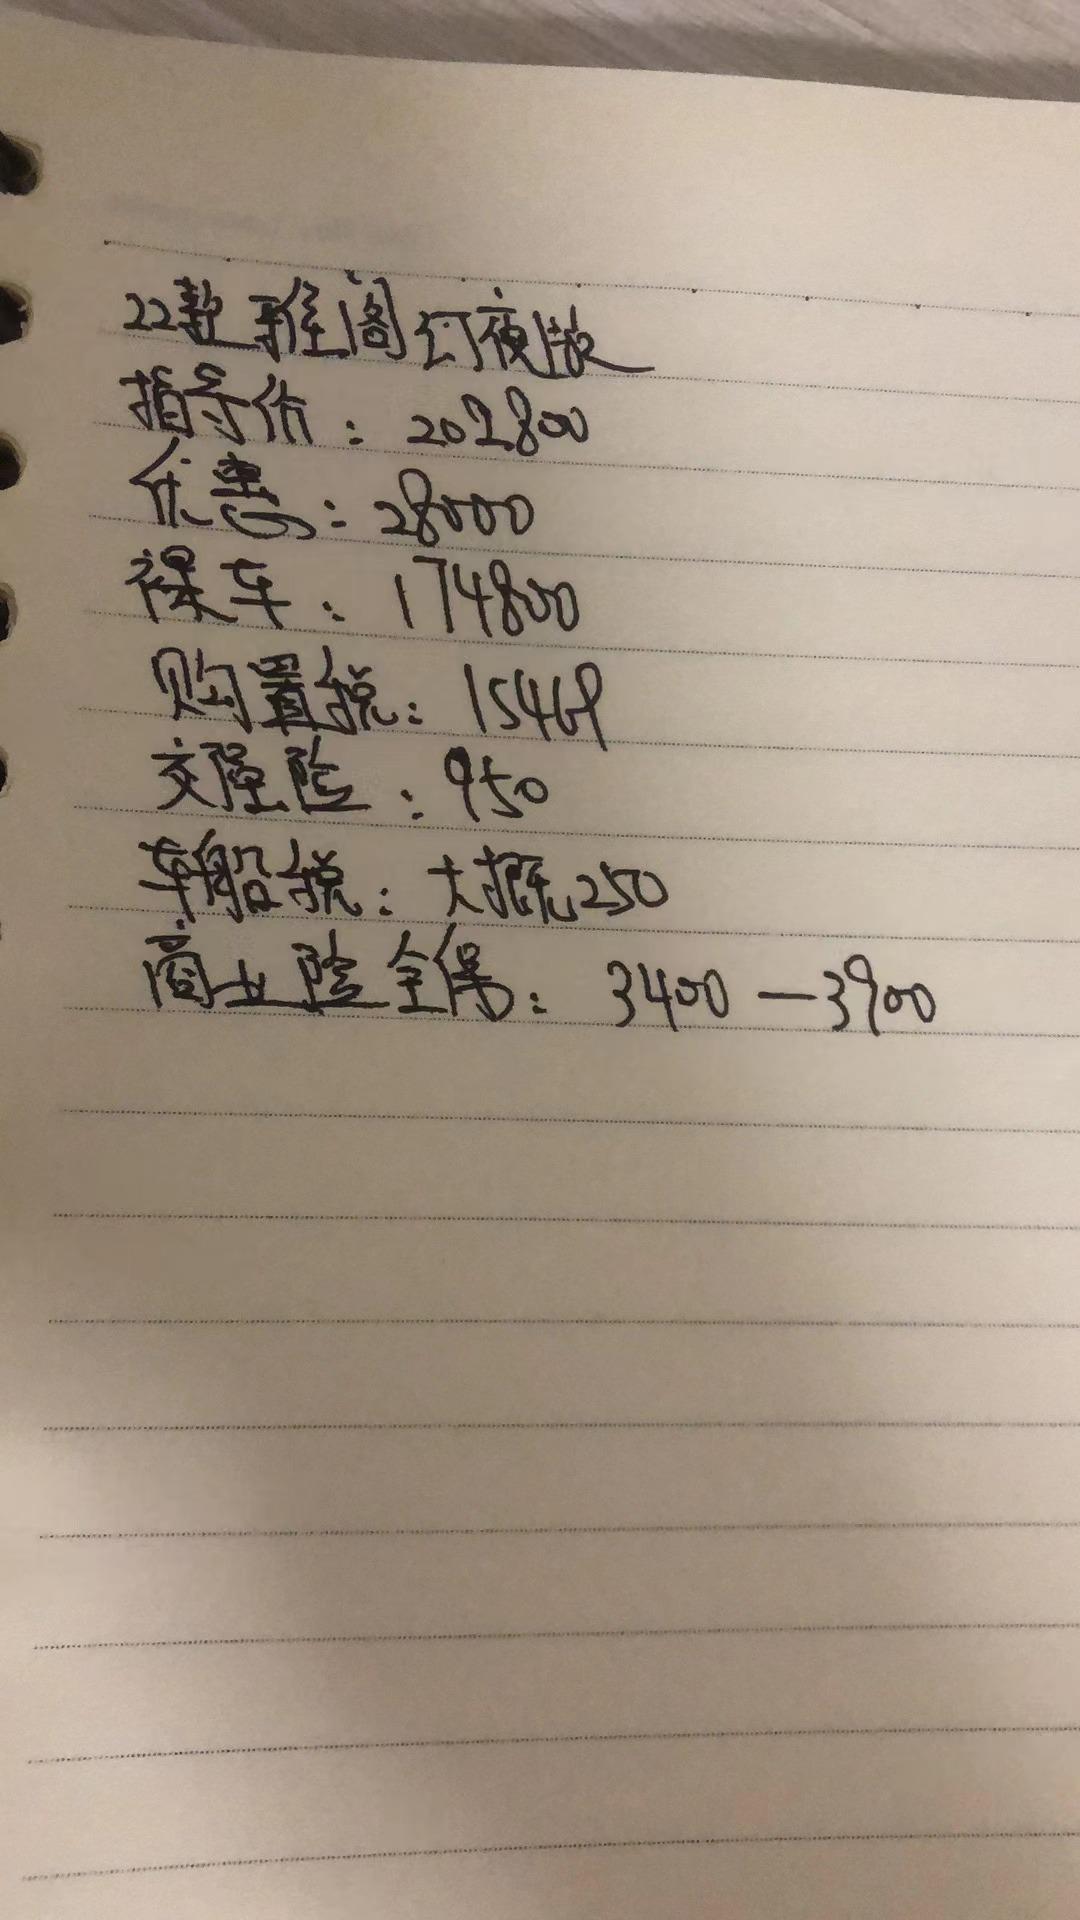 22款雅阁幻夜版
指导价：202800
优惠：28000
裸车：174800
购置税：15469
交强险：950
车船税：大概250
商业险全保：3400—3900